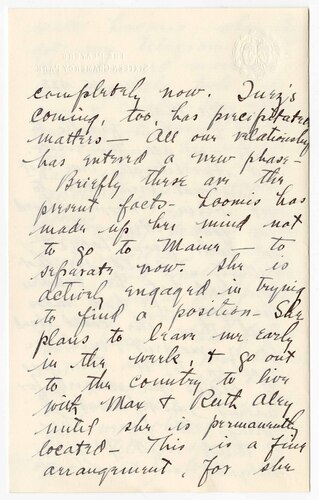 completely now. Inez's
coming, too, has precipitated
matters — All our relationship
has entered a new phase —
Briefly these are the
present facts — Loomis has
made up her mind not
to go to Maine — to
separate now. She is
actively engaged in trying
to find a position — She
plans to leave me early
in the week, & go out
to the country to live
with Max & Ruth Aley
until she is permanently
located — This is a fine
arrangement, for she